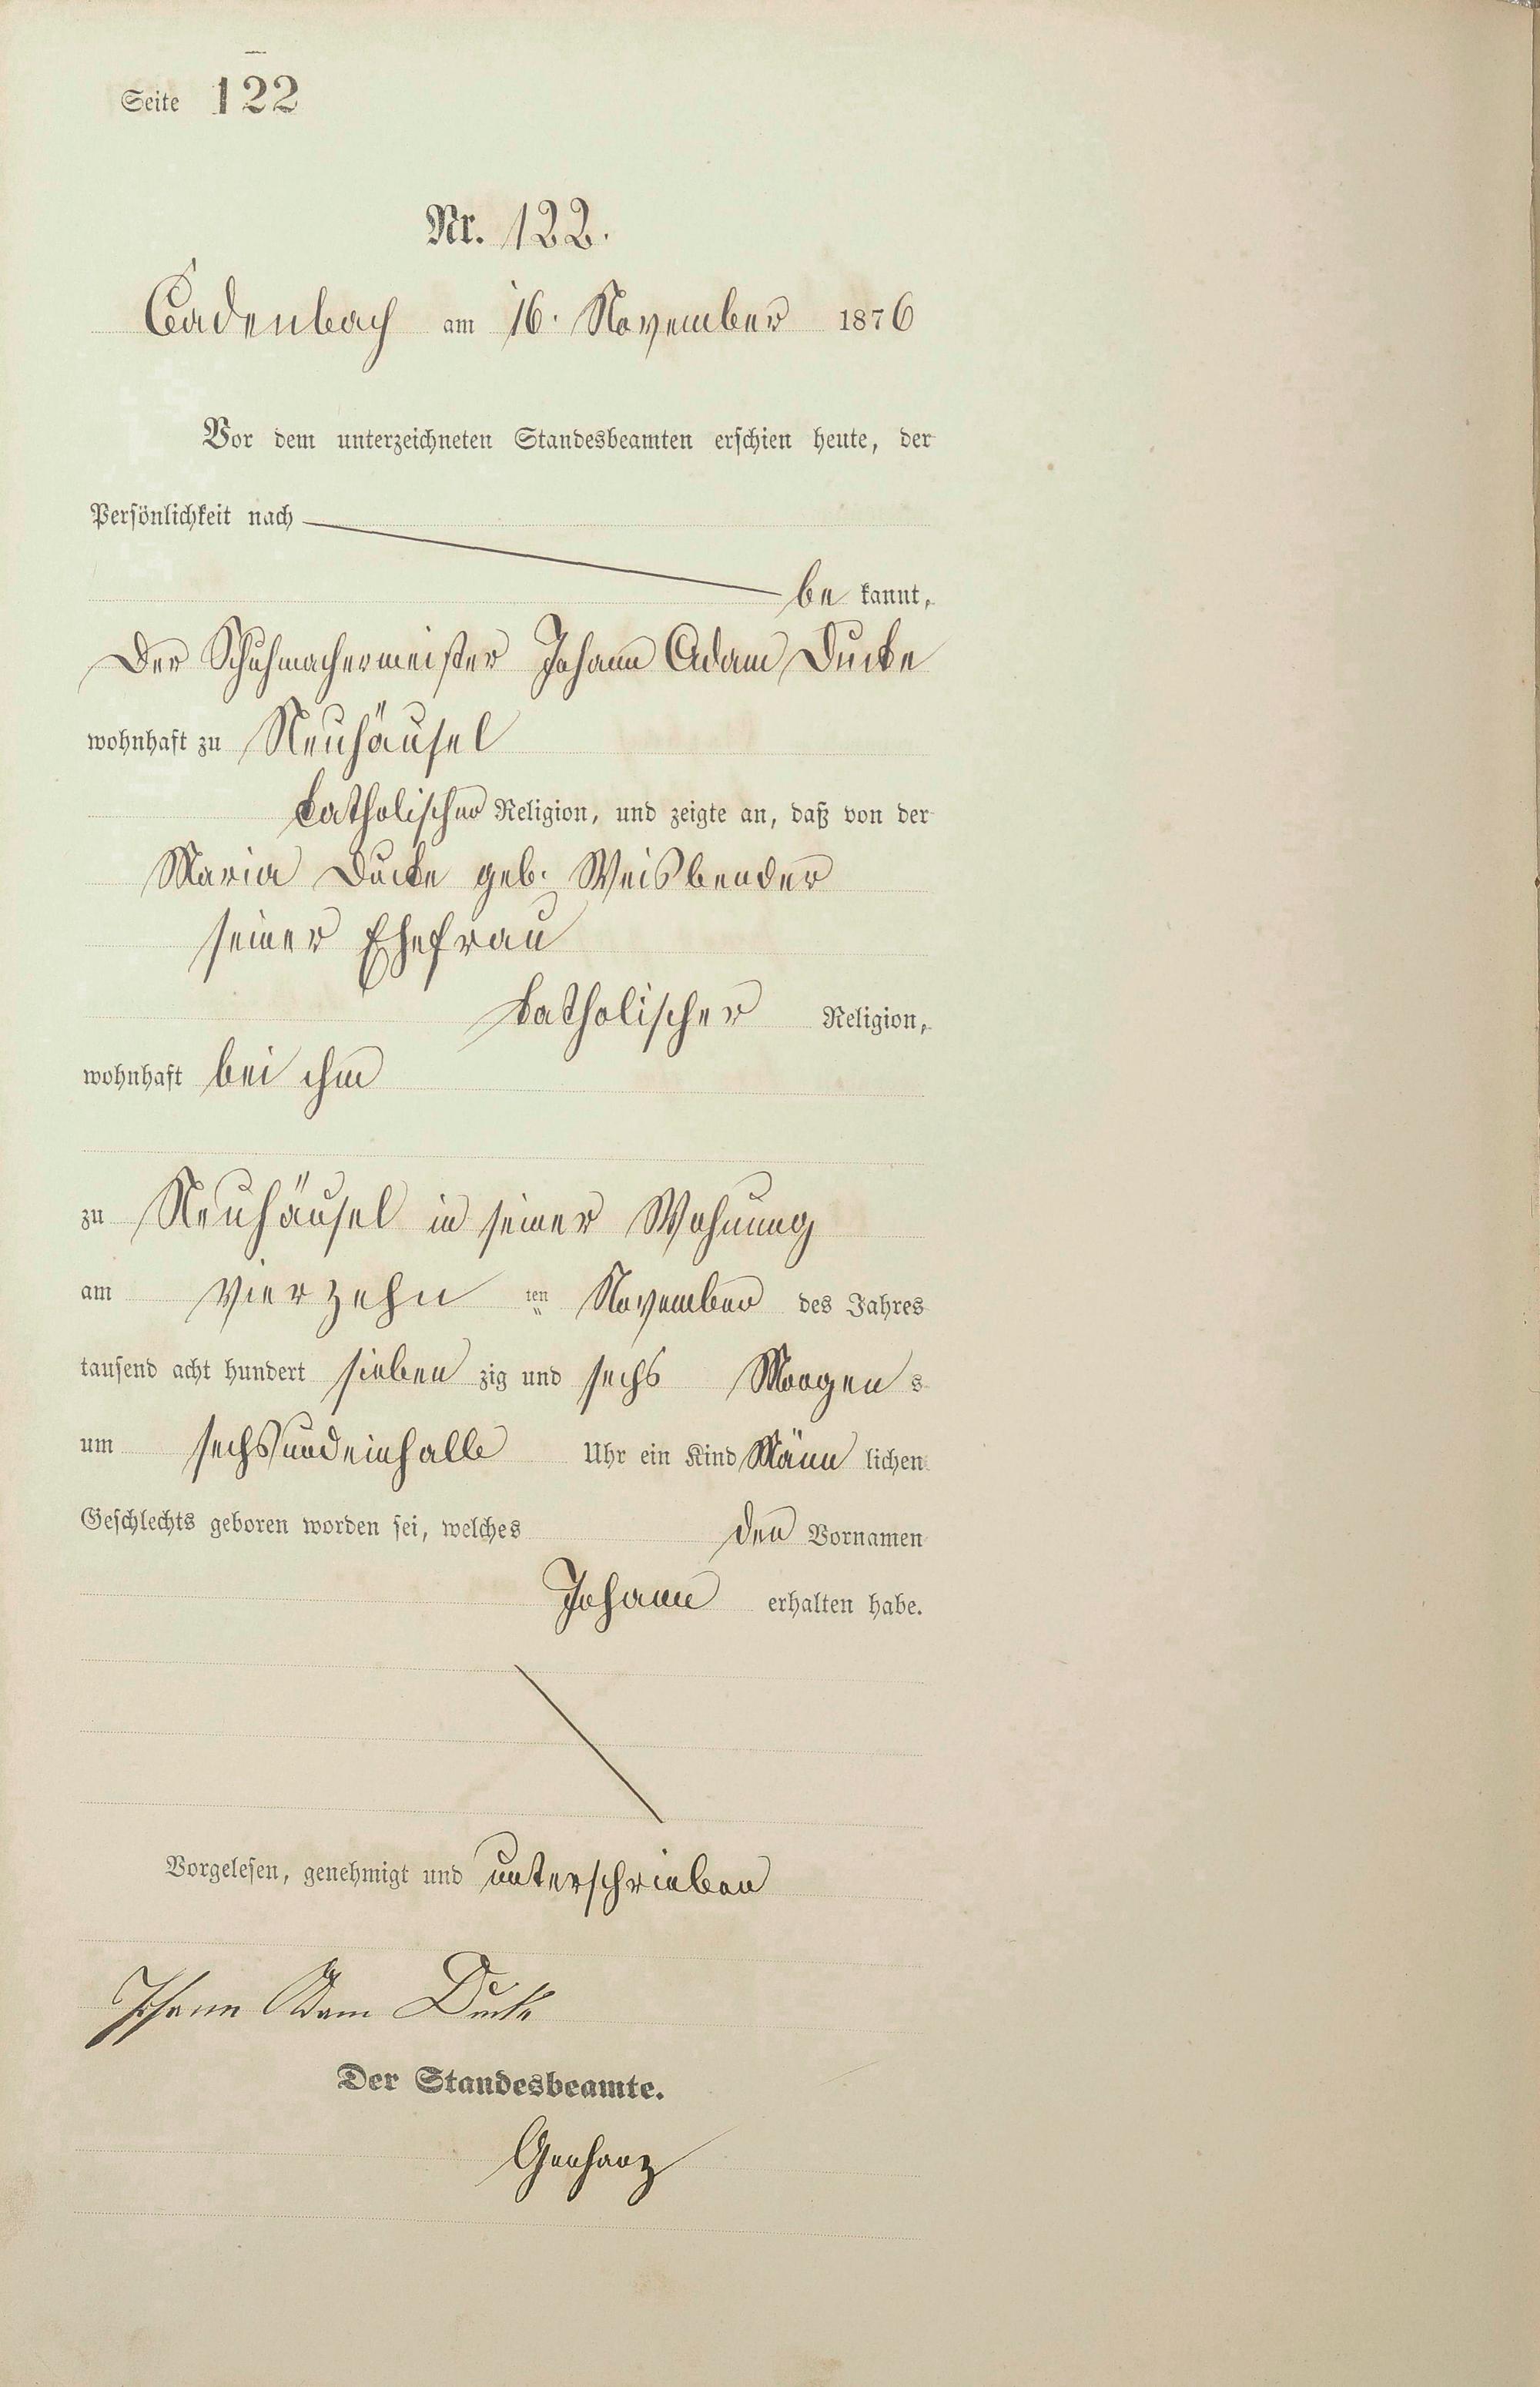 Seite 122
Nr. 122.
Cadenbach am 16. November 1876
Vor dem unterzeichneten Standesbeamten erschien heute, der
Persönlichkeit nach
be kannt,
Der Schuhmachermeister Johann Adam Ducke
wohnhaft zu Neuhäusel
katholischer Religion, und zeigte an, daß von der
Maria Ducke geb. Weisbender
seiner Ehefrau
katholischer Religion,
wohnhaft bei ihm
zu Neuhäusel in seiner Wohnung
am vierzehn ten November des Jahres
tausend acht hundert sieben zig und sechs Morgen s
um sechsundeinhalb Uhr ein Kind Männ lichen
Geschlechts geboren worden sei, welches den Vornamen
Johann erhalten habe.
Vorgelesen, genehmigt und unterschrieben
Johann Adam Ducke
Der Standesbeamte.